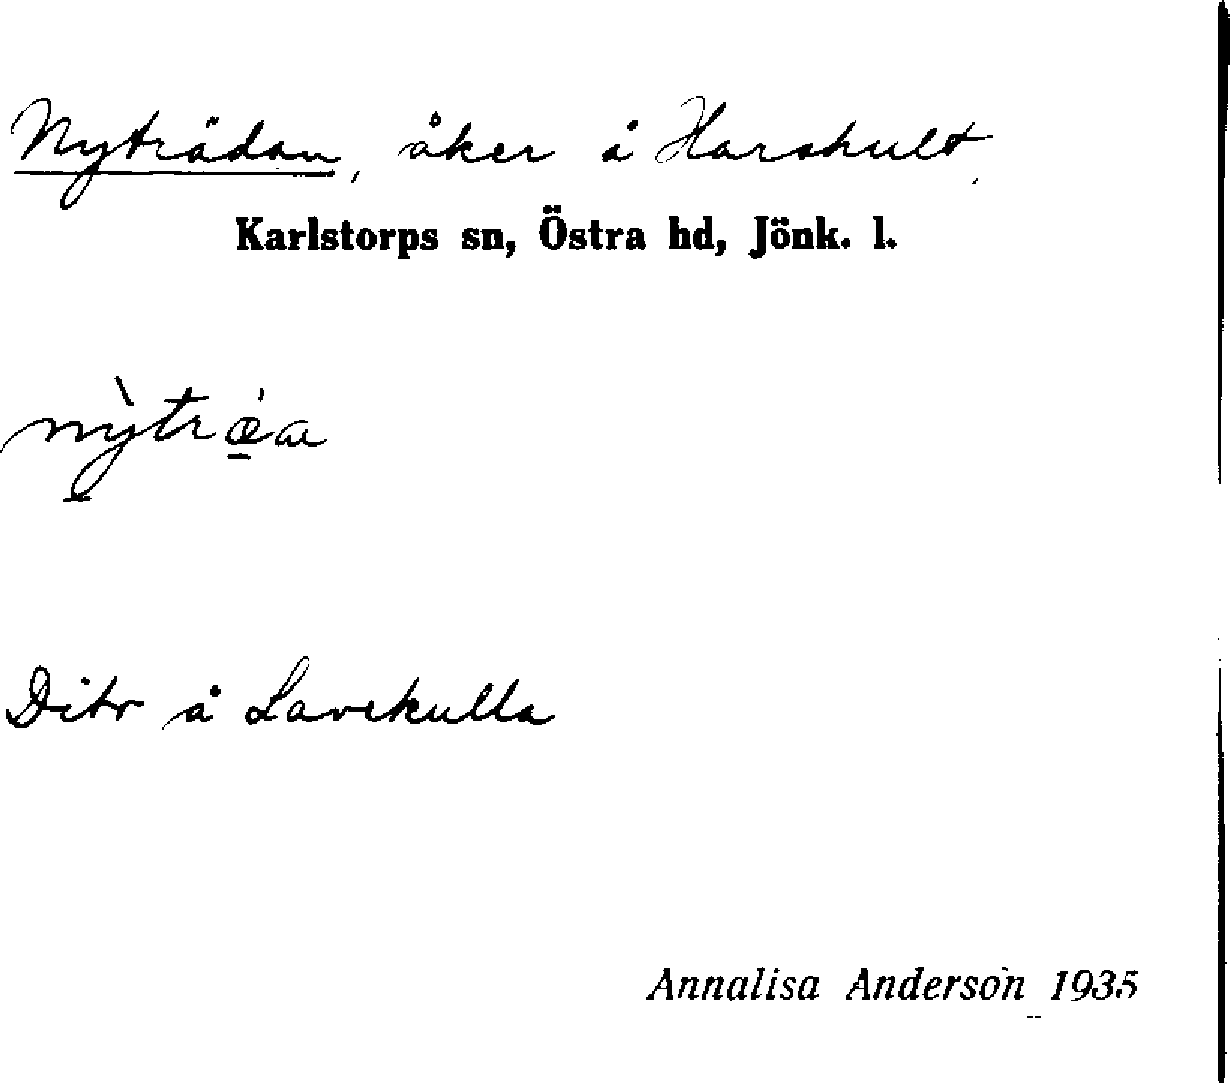 Nyträdan, åker å Harshult.
Karlstorps sn, Östra hd, Jönk. l.
nỳtrǽa
Dito å Lavekulla
Annalisa Anderson 1935